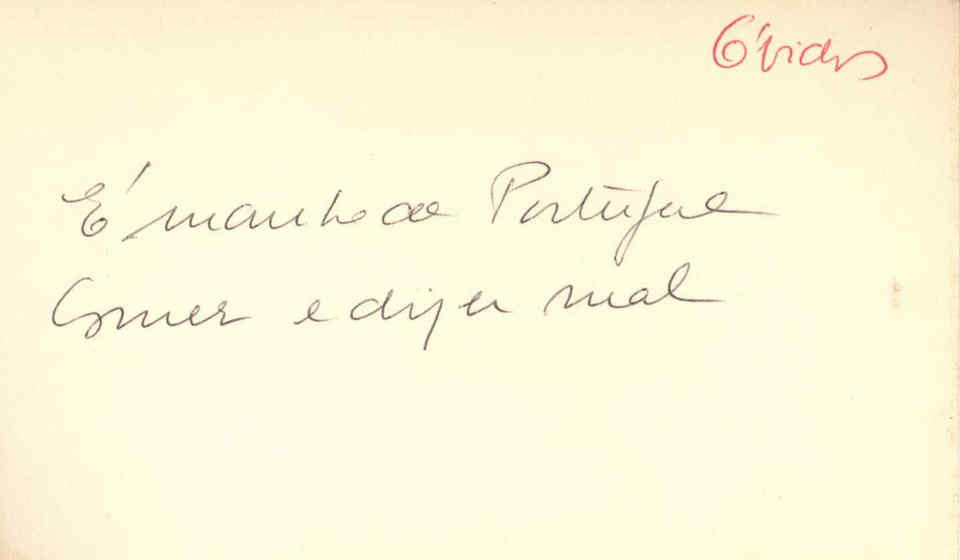 Óbidos
É manha de Portugal
Comer e dizer mal